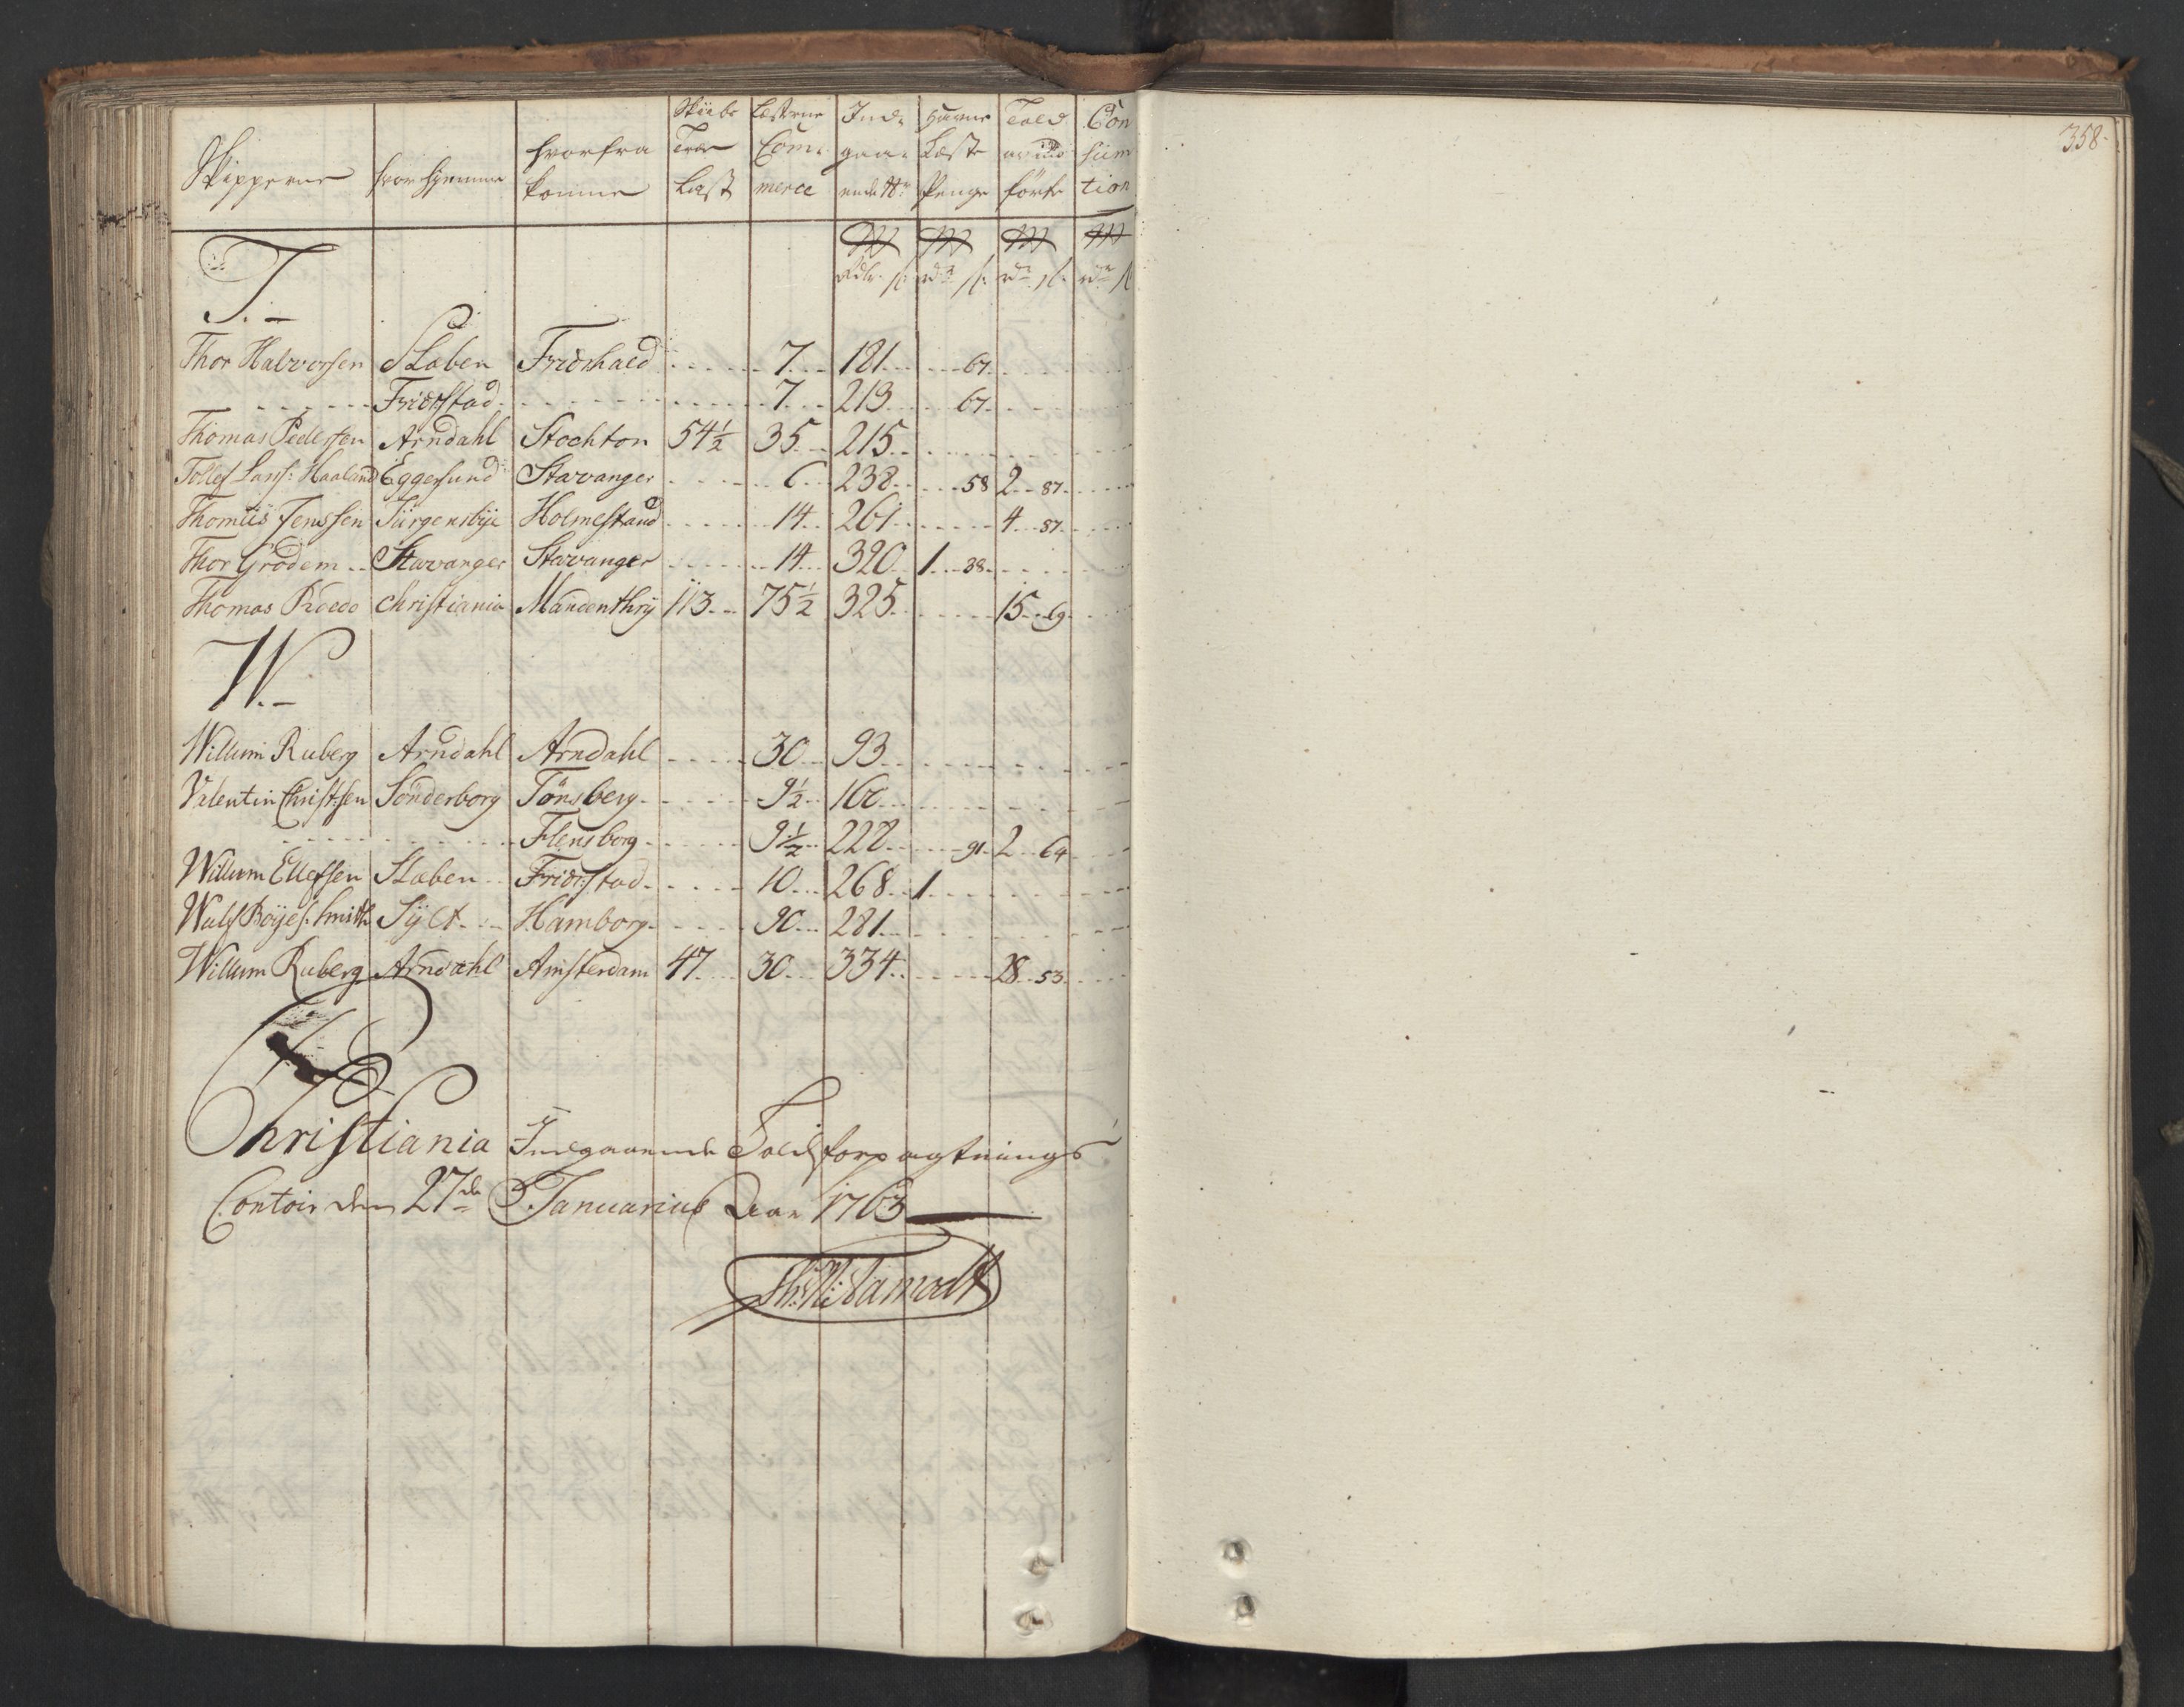 Skipperne | hvor hjemme | hvorfra komme | Skibs Træ Læst | Læsterne Commerce | Indgaaende No | Havne Læste Penge | Told av indførte | Consumtion
Rdlr s | rdr s | rdr s | rdr s
T.
Thor Halvorsen | Slaben | Fridrhald | 7 | 181 | 67
Fridrstad | 7 | 213 | 67
Thomas Pedersen | Arndahl | Stockton | 54½ | 35 | 215
Tollef Lars: Haaland | Eggersund | Stavanger | 6 | 238 | 58 | 2 87
Thomas Jenssen | Jürgensbÿe | Holmestand | 14 | 261 | 4 87
Thor Grödem | Stavanger | Stavanger | 14 | 320 | 1 38
Thomas Roedo | Christiania | Mandenthrÿ | 113 | 75½ | 325 | 15 69
W.
Willum Ruberg | Arndahl | Arndahl | 30 | 93
Valentin Christsen | Sönderborg | Tönsberg | 9½ | 166
Flensborg | 9½ | 228 | 91 | 2 64
Willum Ellefsen | Slaben | Fridrstad | 10 | 268 | 1
Wulf Boÿes: Smith | Sÿlt | Hamborg | 90 | 281
Willum Ruberg | Arndahl | Amsterdam | 47 | 30 | 334 | 28 53
Christiania Indgaaende Toldforpagtnings
Contoir den 27de Januarius Aar 1763
358.